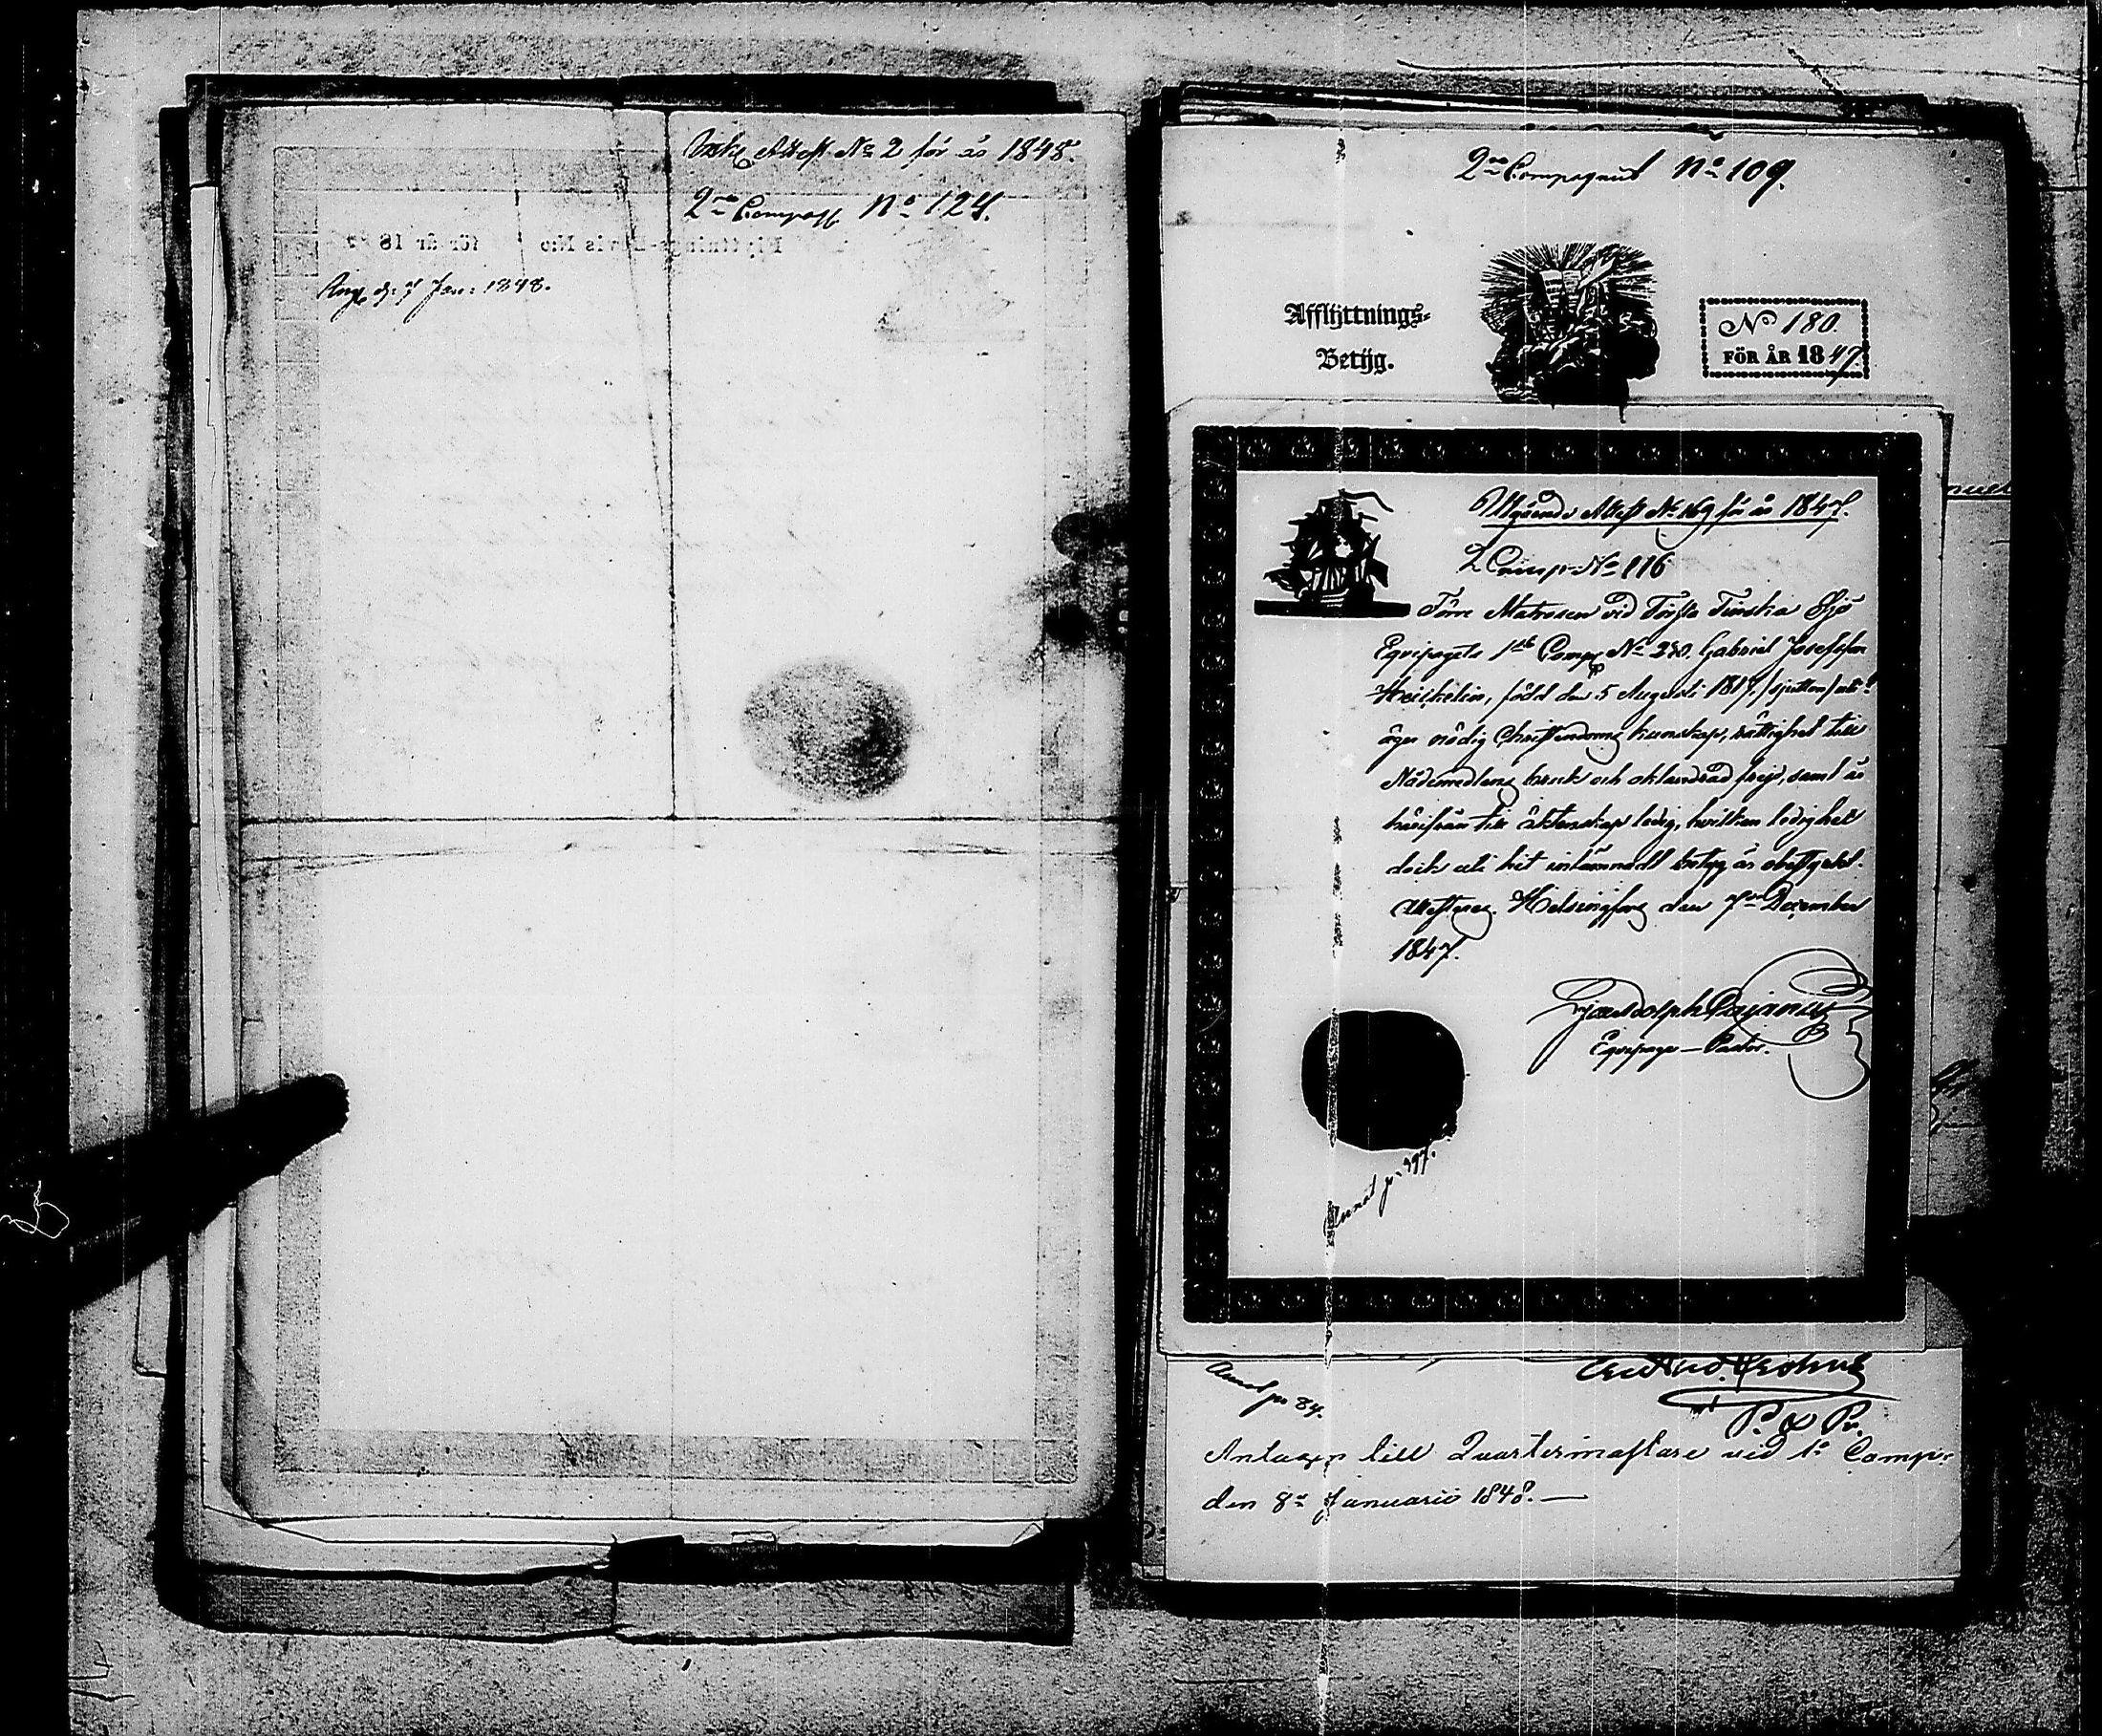 Attest No 2 för år 1848.
2ra Compag No 124.
Flyttnings-Bevis No för år 18
d. 7 Jan: 1848.
2ra Compagniet No 109.
Afflyttnings-
Betyg.
No 180.
FÖR ÅR 1847.
Utgående Attest No 169 för år 1847.
2 Comp. No 116
Förre Matrosen vid Första Finska Sjö
Equipagets 1sta Comp No 230. Gabriel Josefsson
Heickelin, född den 5 Augusti 1817, /sjutton/
äger nödig Christendoms kunskap, rättighet till
Nådemedlens bruk och oklandrad frejd, samt är
härifrån till äktenskap ledig, hvilken ledighet
dock uti hit inlämnadt betyg är obestyrkt.
Attesteras. Helsingfors den 7de December
1847.
Adolph Pajanus
Equipage-Pastor.
Annot p. 297.
Annot p. 84.
P. & Pr.
Antagen till Quartermästare vid 1a Comp:
den 8de Januarii 1848.—